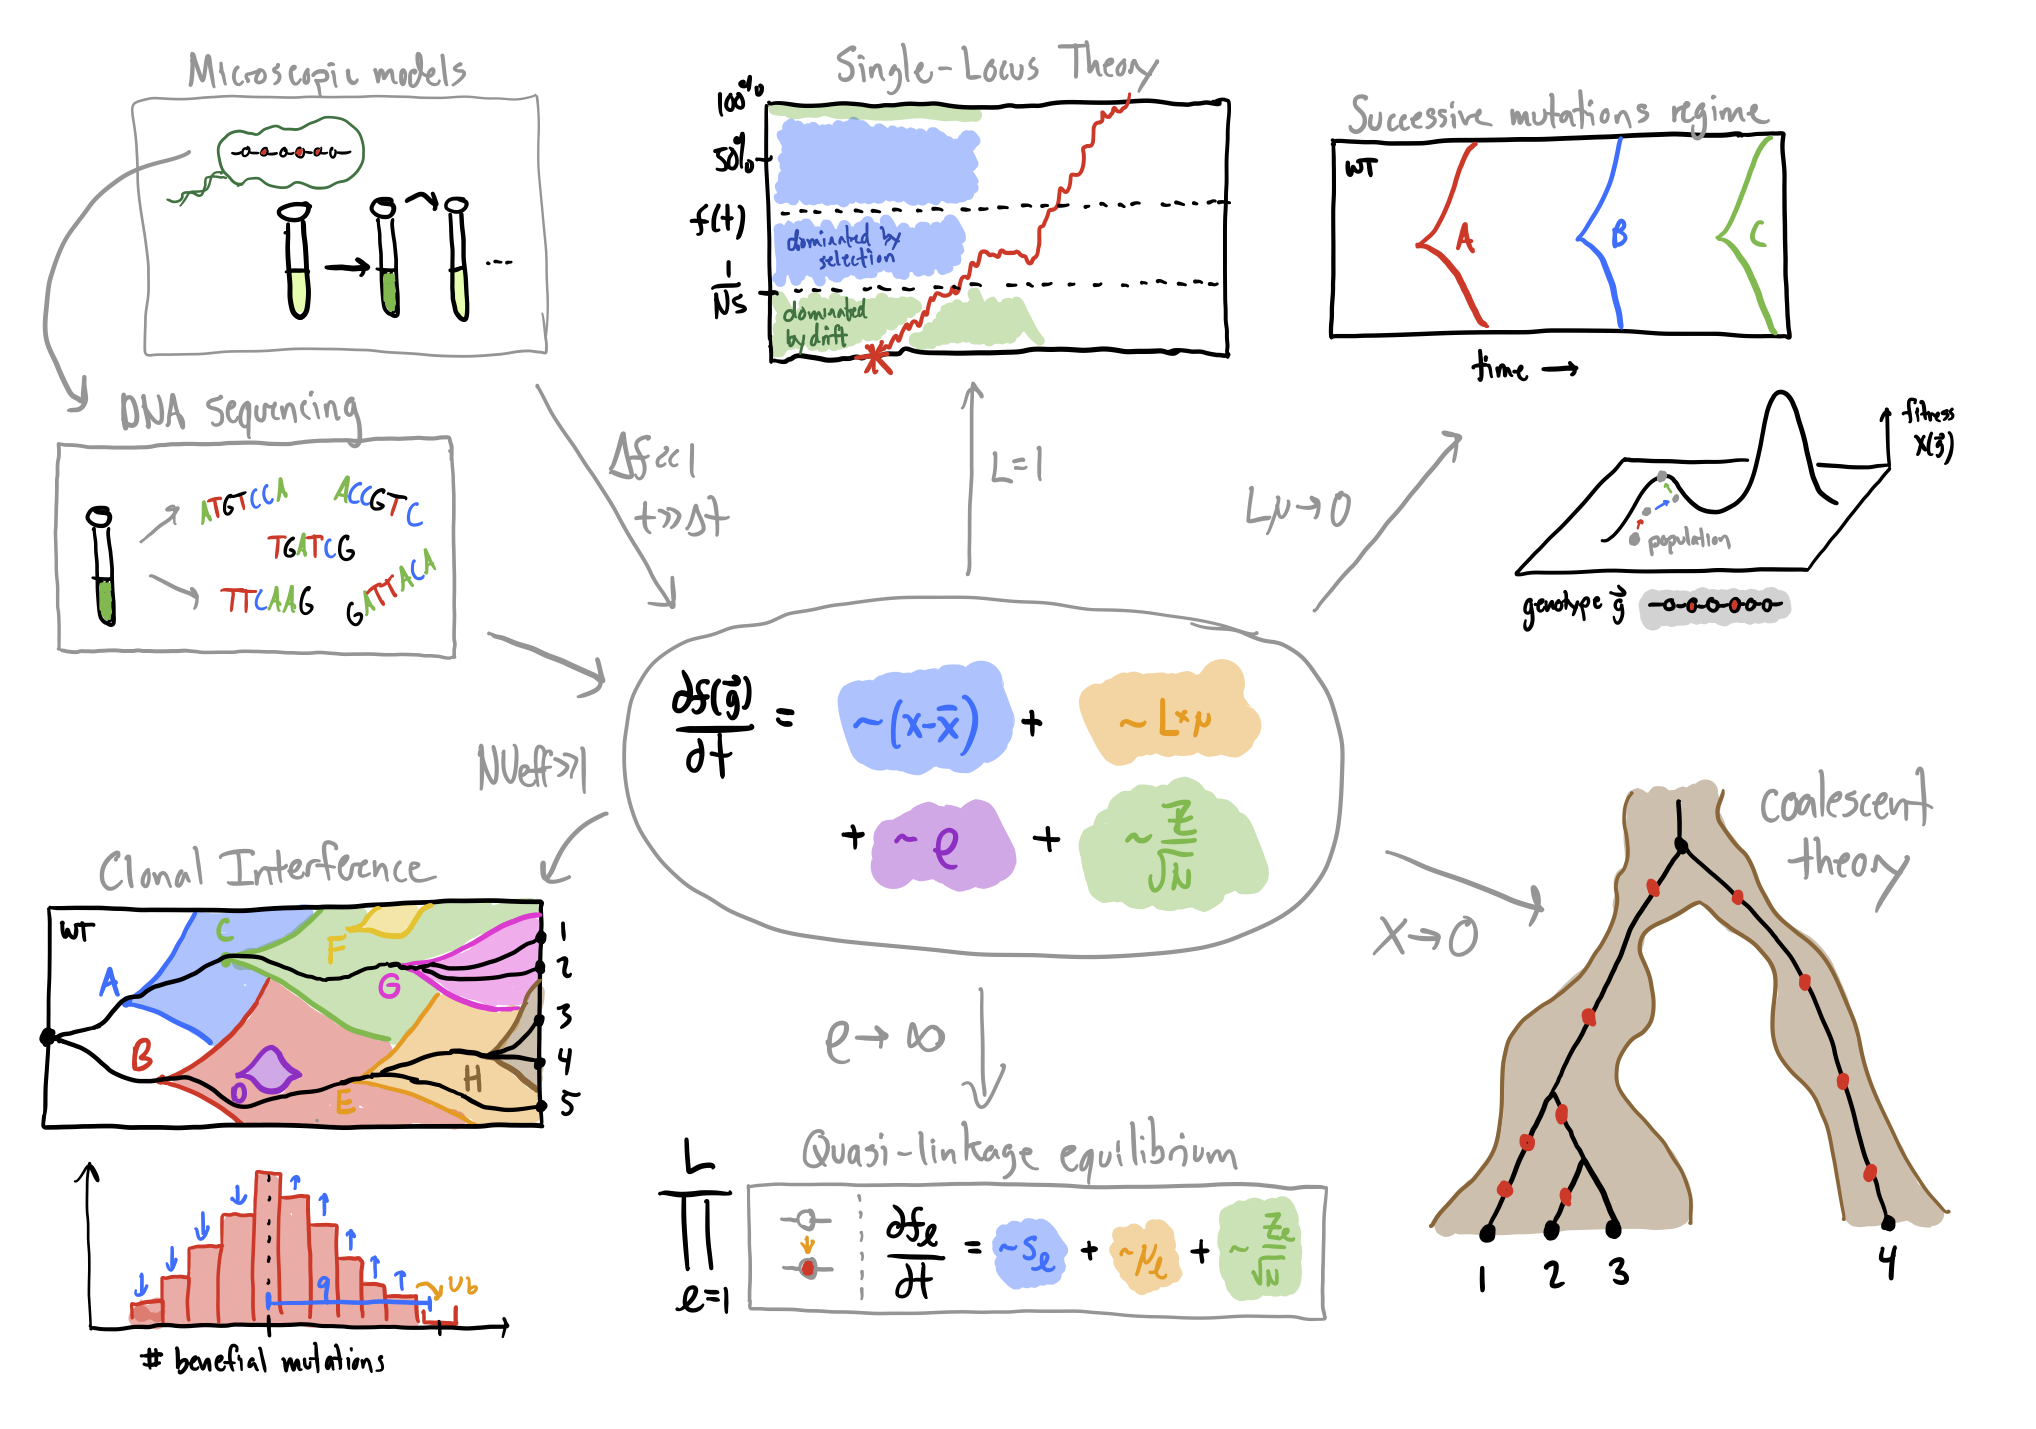 Microscopic models
...
DNA sequencing
ATGTCCA
ACCGTC
TGATCG
TTCAAG
GATTACA
Δf≪1
t≫Δt
Single-Locus Theory
100%
50%
f(t)
1/Ns
dominated by
selection
dominated
by drift
L=1
Successive mutations regime
WT
A
B
C
time →
fitness
X(g⃗)
population
genotype g⃗
Lμ→0
∂f(g⃗)/∂t = ~(x-x̄) + ~L×μ
+ ~ρ + ~Z/√N
NUeff≫1
Clonal Interference
WT
A
B
C
D
E
F
G
H
1
2
3
4
5
q
Ub
# benefial mutations
ρ→∞
Quasi-linkage equilibrium
L
∏
ℓ=1
∂fℓ/∂t = ~sℓ + ~μℓ + ~Zℓ/√N
X→0
coalescent
theory
1
2
3
4